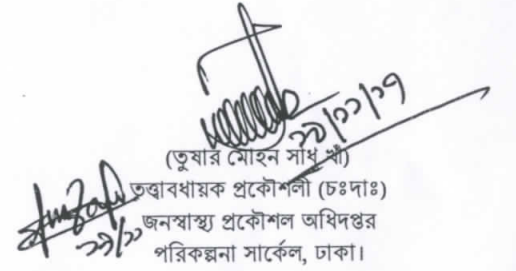 ১৯/১১/১৭
(তুষার মোহন সাধু খাঁ)
তত্ত্বাবধায়ক প্রকৌশলী (চঃদাঃ)
জনস্বাস্থ্য প্রকৌশল অধিদপ্তর
১৯/১১
পরিকল্পনা সার্কেল, ঢাকা।